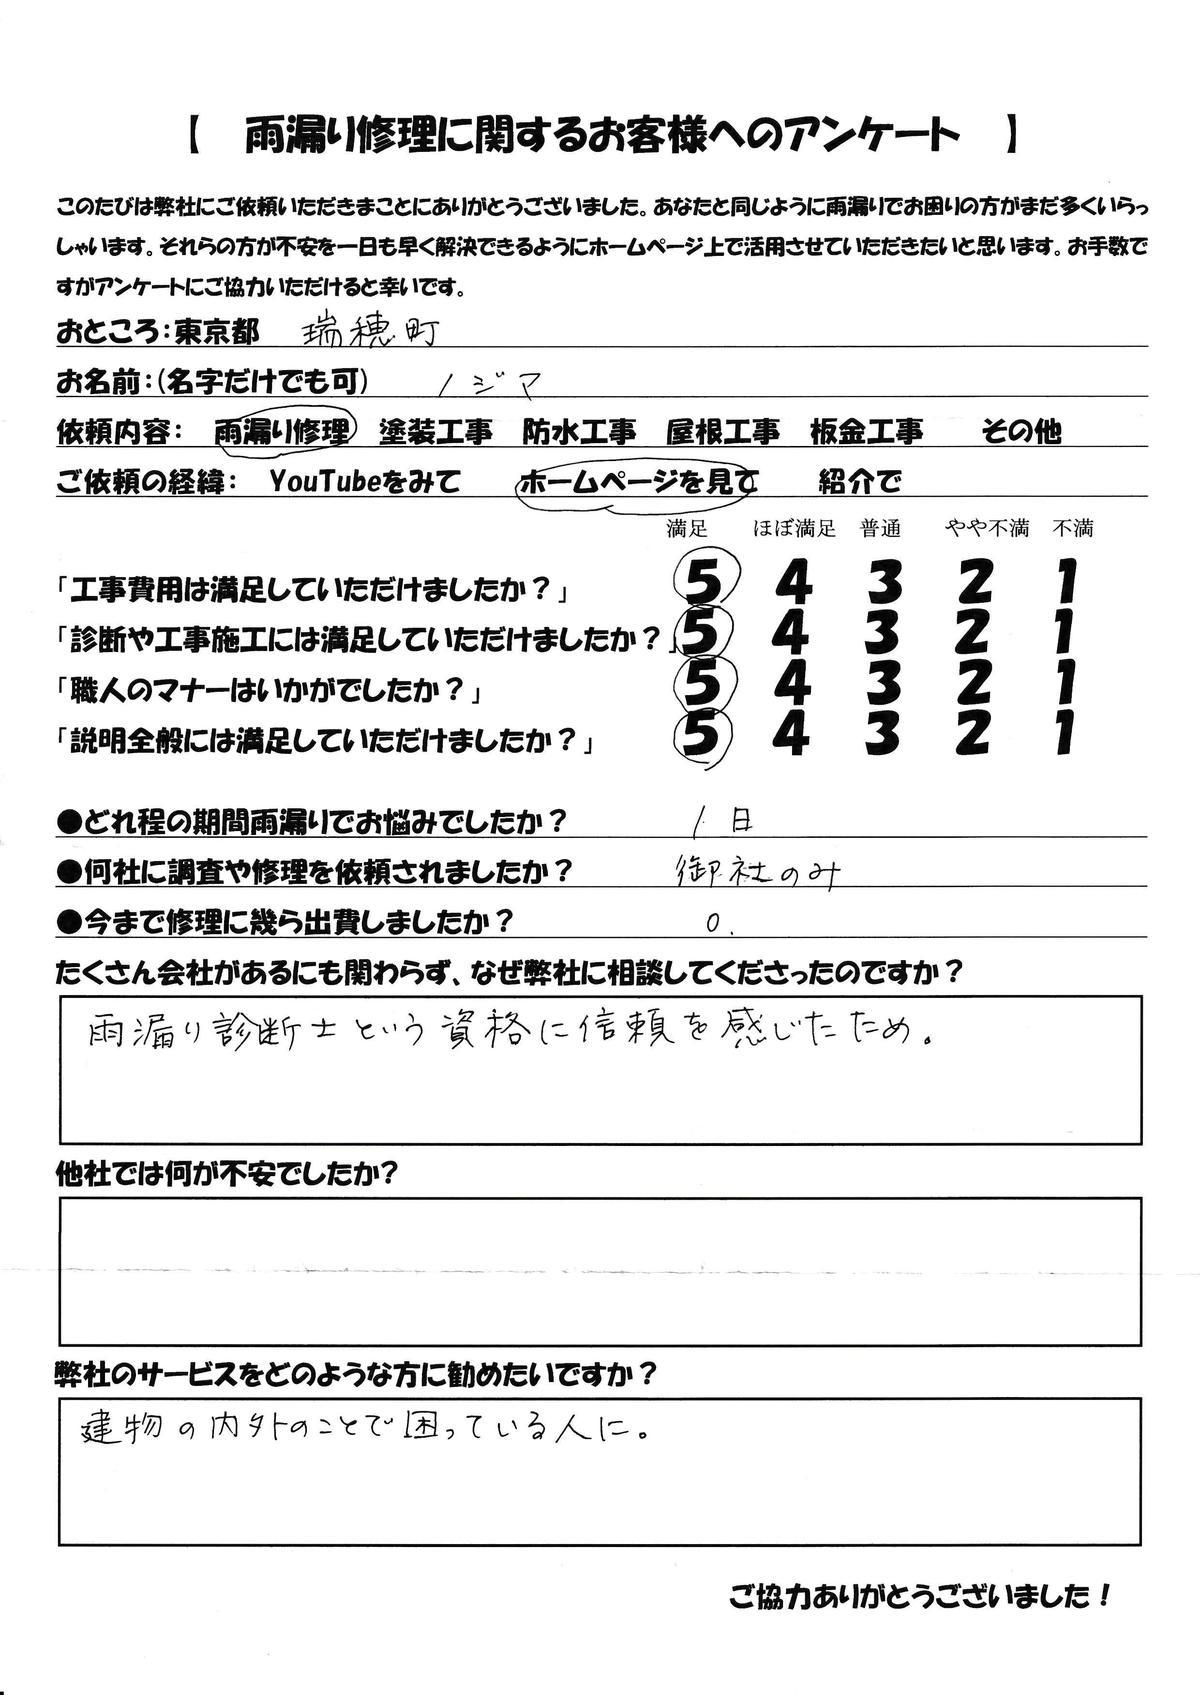 【　雨漏り修理に関するお客様へのアンケート　】
このたびは弊社にご依頼いただきまことにありがとうございました。あなたと同じように雨漏りでお困りの方がまだ多くいらっ
しゃいます。それらの方が不安を一日も早く解決できるようにホームページ上で活用させていただきたいと思います。お手数で
すがアンケートにご協力いただけると幸いです。
おところ：東京都　瑞穂町
お名前：（名字だけでも可）　ノジマ
依頼内容：　雨漏り修理　塗装工事　防水工事　屋根工事　板金工事　その他
ご依頼の経緯：　YouTubeをみて　ホームページを見て　紹介で
満足　ほぼ満足　普通　やや不満　不満
「工事費用は満足していただけましたか？」　5　4　3　2　1
「診断や工事施工には満足していただけましたか？」　5　4　3　2　1
「職人のマナーはいかがでしたか？」　5　4　3　2　1
「説明全般には満足していただけましたか？」　5　4　3　2　1
●どれ程の期間雨漏りでお悩みでしたか？　1日
●何社に調査や修理を依頼されましたか？　御社のみ
●今まで修理に幾ら出費しましたか？　0.
たくさん会社があるにも関わらず、なぜ弊社に相談してくださったのですか？
雨漏り診断士という資格に信頼を感じたため。
他社では何が不安でしたか？
弊社のサービスをどのような方に勧めたいですか？
建物の内外のことで困っている人に。
ご協力ありがとうございました！